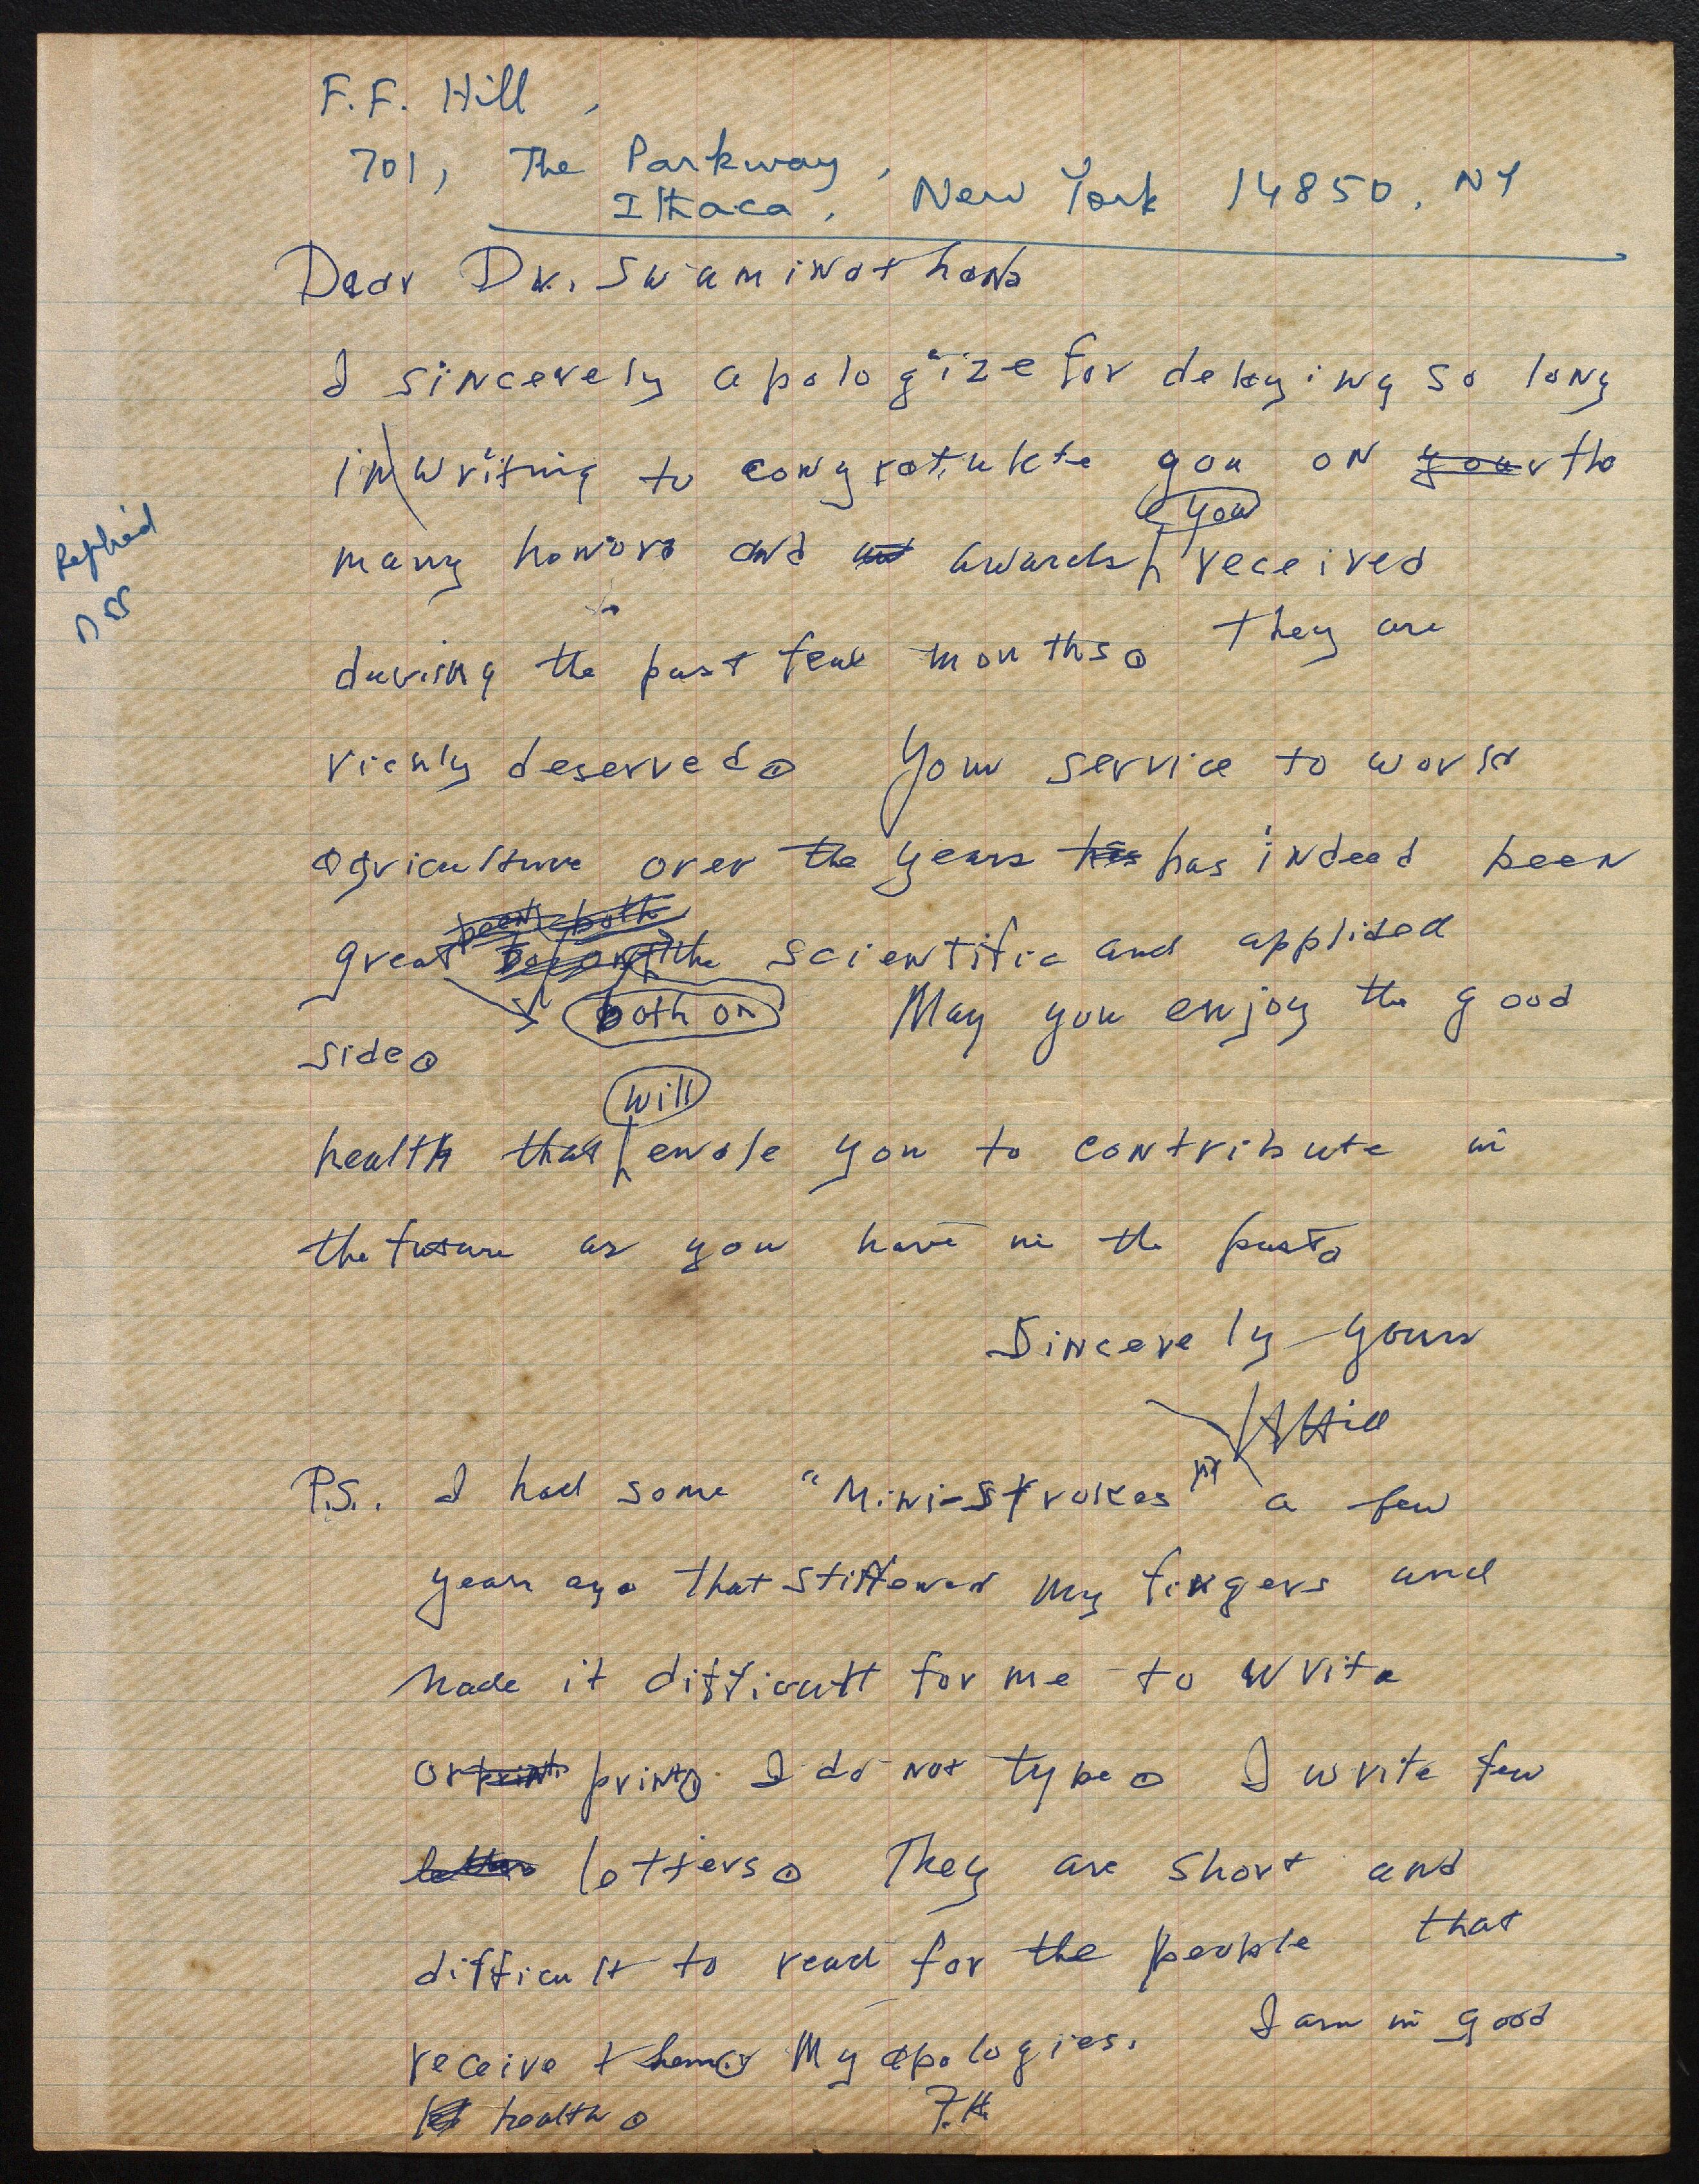 F.F. Hill,
701, The Parkway,
Ithaca, New York 14850, NY
Dear Dr. Swaminathan
I sincerely apologize for delaying so long
in writing to congratulate you on your the
many honors and awards you received
during the past few months. They are
richly deserved. Your service to world
agriculture over the years has has indeed been
great both on the scientific and applided
side. May you enjoy the good
health that will enale you to contribute in
the future as you have in the past.
Sincerely yours
FF Hill
P.S. I had some "Mini-Strokes" a few
years ago that stiffened my fingers and
made it difficult for me to write
or print print. I do not type. I write few
letters letters. They are short and
difficult to read for the people that
receive them. My apologies. I am in good
health. F.H.
Replied